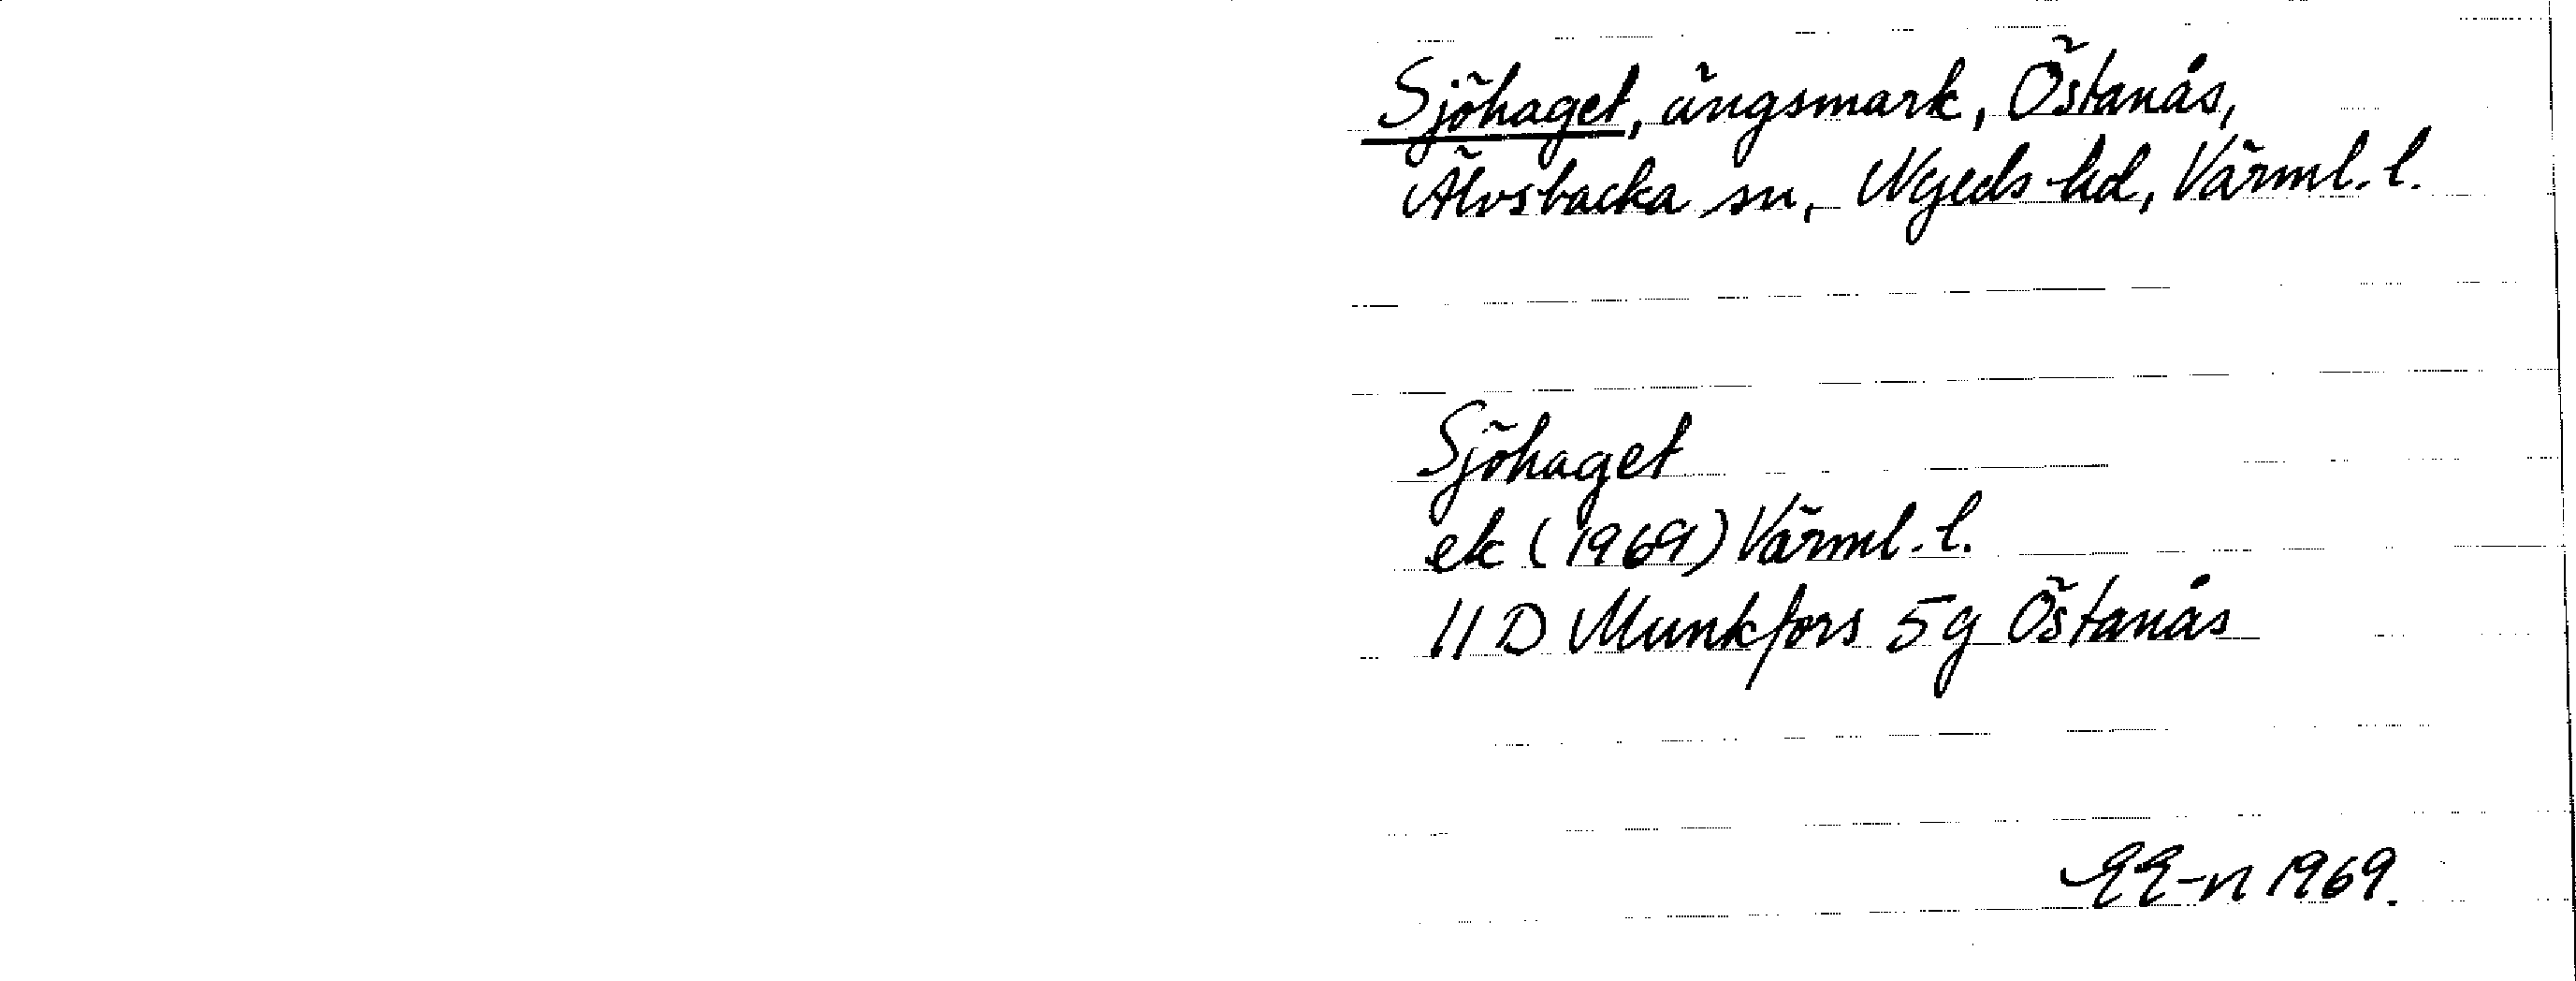 Sjöhaget, ängsmark, Östanås,
Älvsbacka sn, Nyeds hd, Värml. l.
Sjöhaget
ek (1969) Värml. l.
11 D Munkfors 5g Östanås
EE-n 1969.